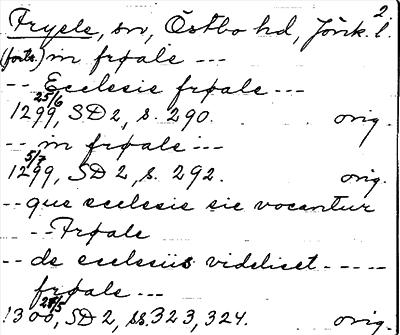 2.
Fryele, sn, Östbo hd, Jönk. l.
(forts.) in frøale ---
-- Ecclesie frøale ---
25/6
1299, SD 2, s. 290. orig.
-- in frøale ---
5/7
1299, SD 2, s. 292. orig.
-- que ecclesie sic vocantur
-- Frøale
-- de ecclesiis videlicet -----
frøale ---
1300, SD 2, ss. 323, 324. orig.